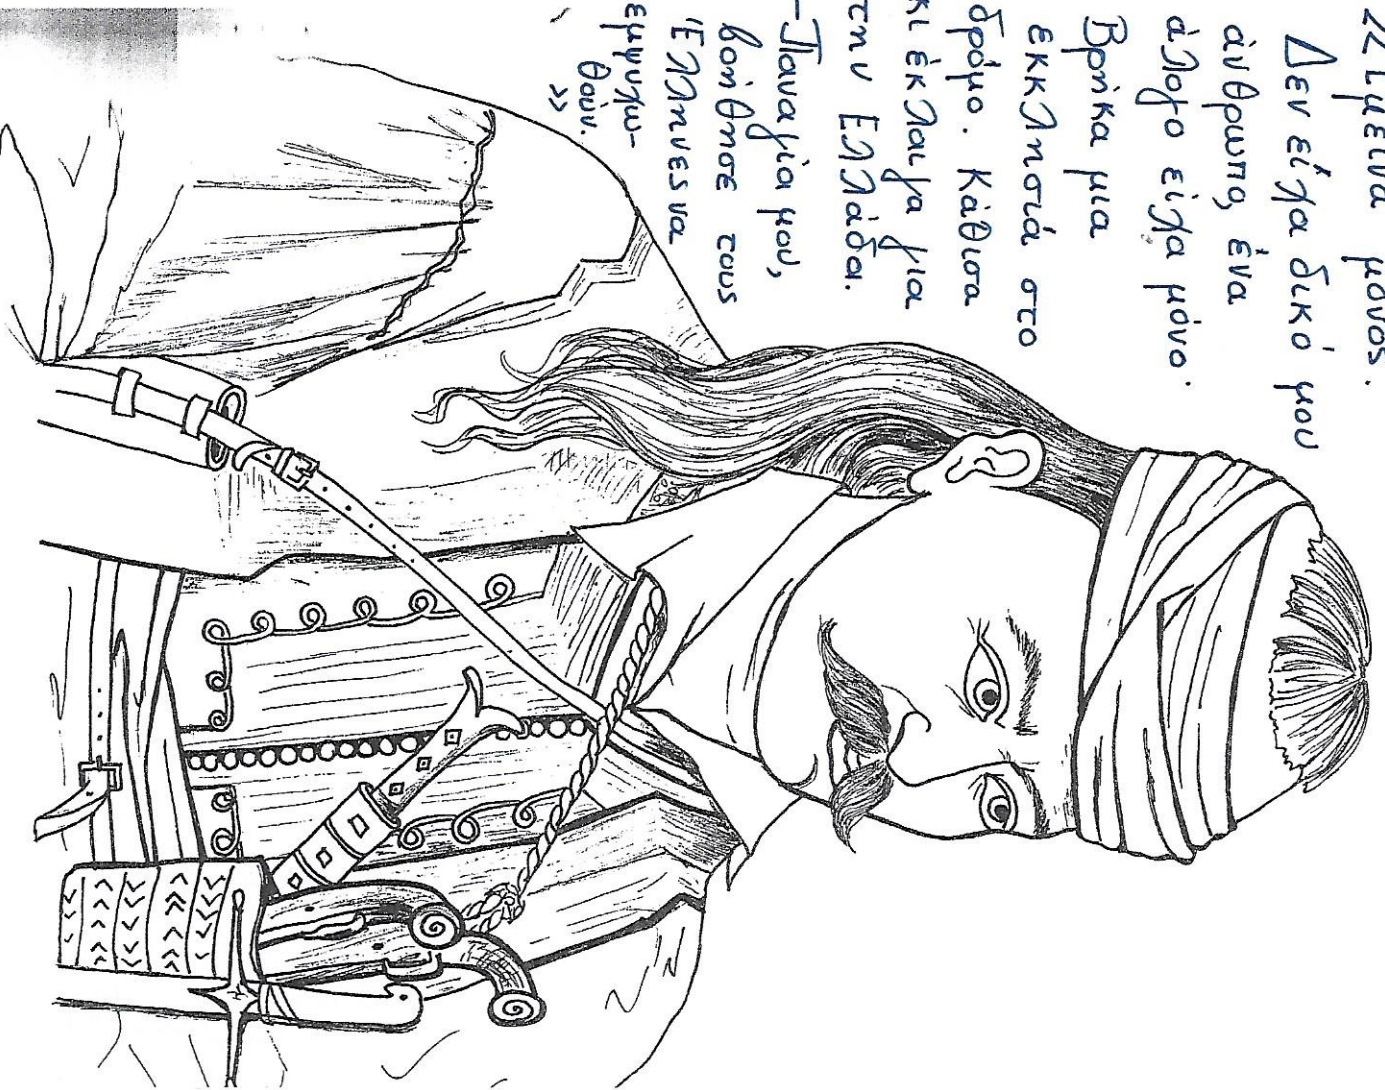 «Έμεινα μόνος.
Δεν είχα δικό μου
άνθρωπο, ένα
άλογο είχα μόνο.
Βρήκα μια
εκκλησιά στο
δρόμο. Κάθισα
κι έκλαιγα για
την Ελλάδα.
-Παναγία μου,
βοήθησε τους
Έλληνες να
εμψυχω-
θούν.
»